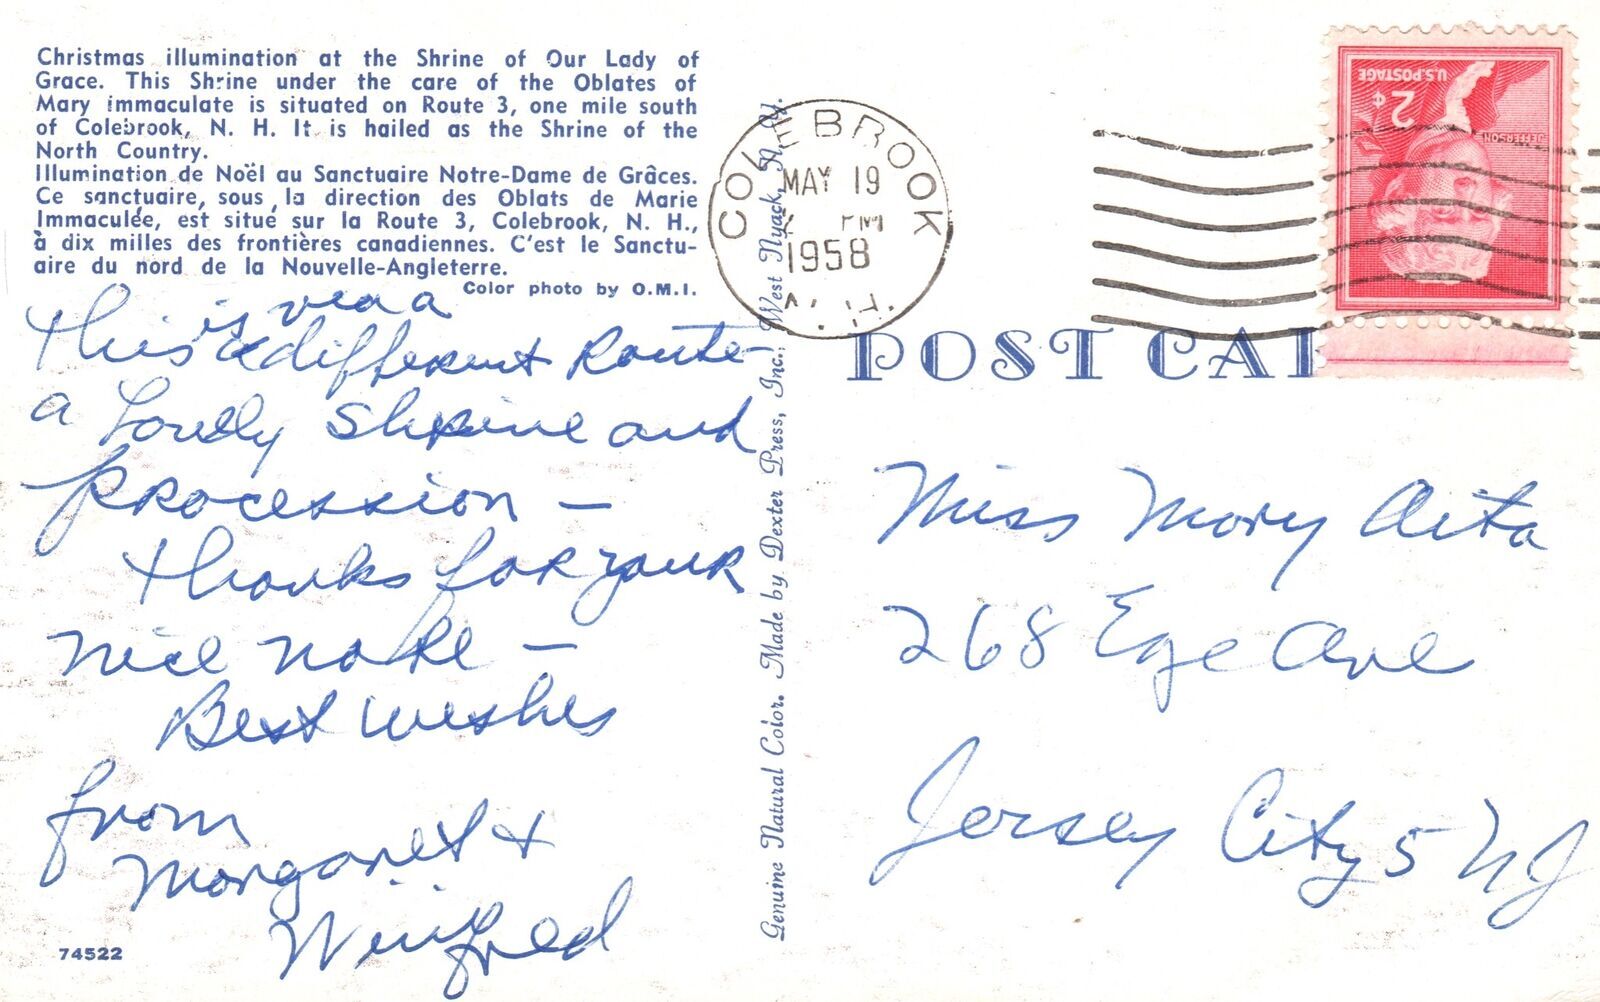 Christmas illumination at the Shrine of Our Lady of
Grace. This Shrine under the care of the Oblates of
Mary immaculate is situated on Route 3, one mile south
of Colebrook, N. H. It is hailed as the Shrine of the
North Country.
Illumination de Noël au Sanctuaire Notre-Dame de Grâces.
Ce sanctuaire, sous la direction des Oblats de Marie
Immaculée, est situé sur la Route 3, Colebrook, N. H.,
à dix milles des frontières canadiennes. C'est le Sanctu-
aire du nord de la Nouvelle-Angleterre.
Color photo by O.M.I.
is via a
This a different Route -
a Lovely Shrine and
procession -
thanks for your
nice note -
Best wishes
from
Margaret +
Winifred
74522
Genuine Natural Color. Made by Dexter Press, Inc., West Nyack, N.Y.
COLEBROOK
MAY 19
PM
1958
N. H.
U.S. POSTAGE
2¢
JEFFERSON
POST CAR
Miss Mary Aita
268 Ege Ave
Jersey City 5 NJ